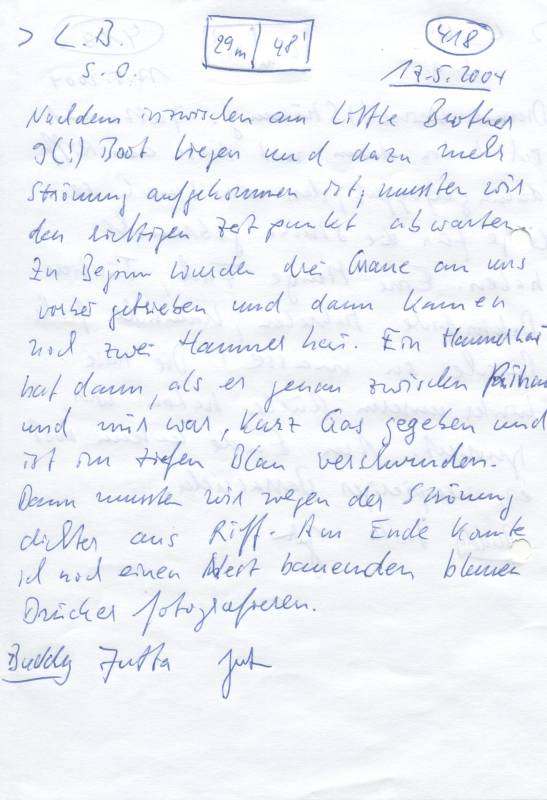 > L. B. 29m 48' 418
S.O. 17.5.2004
Nachdem inzwischen am Little Brother
9(!) Boot liegen und dazu mehr
Strömung aufgekommen ist, mussten wir
den richtigen Zeitpunkt abwarten.
Zu Beginn wurden drei Graue an uns
vorbei getrieben und dann kamen
noch zwei Hammerhai. Ein Hammerhai
hat dann, als er genau zwischen
und mir war, kurz Gas gegeben und
ist im tiefen Blau verschwunden.
Dann mussten wir wegen der Strömung
dichter ans Riff. Am Ende konnte
ich noch einen Nest bauenden blauen
Drücker fotografieren.
Buddy Jutta gut